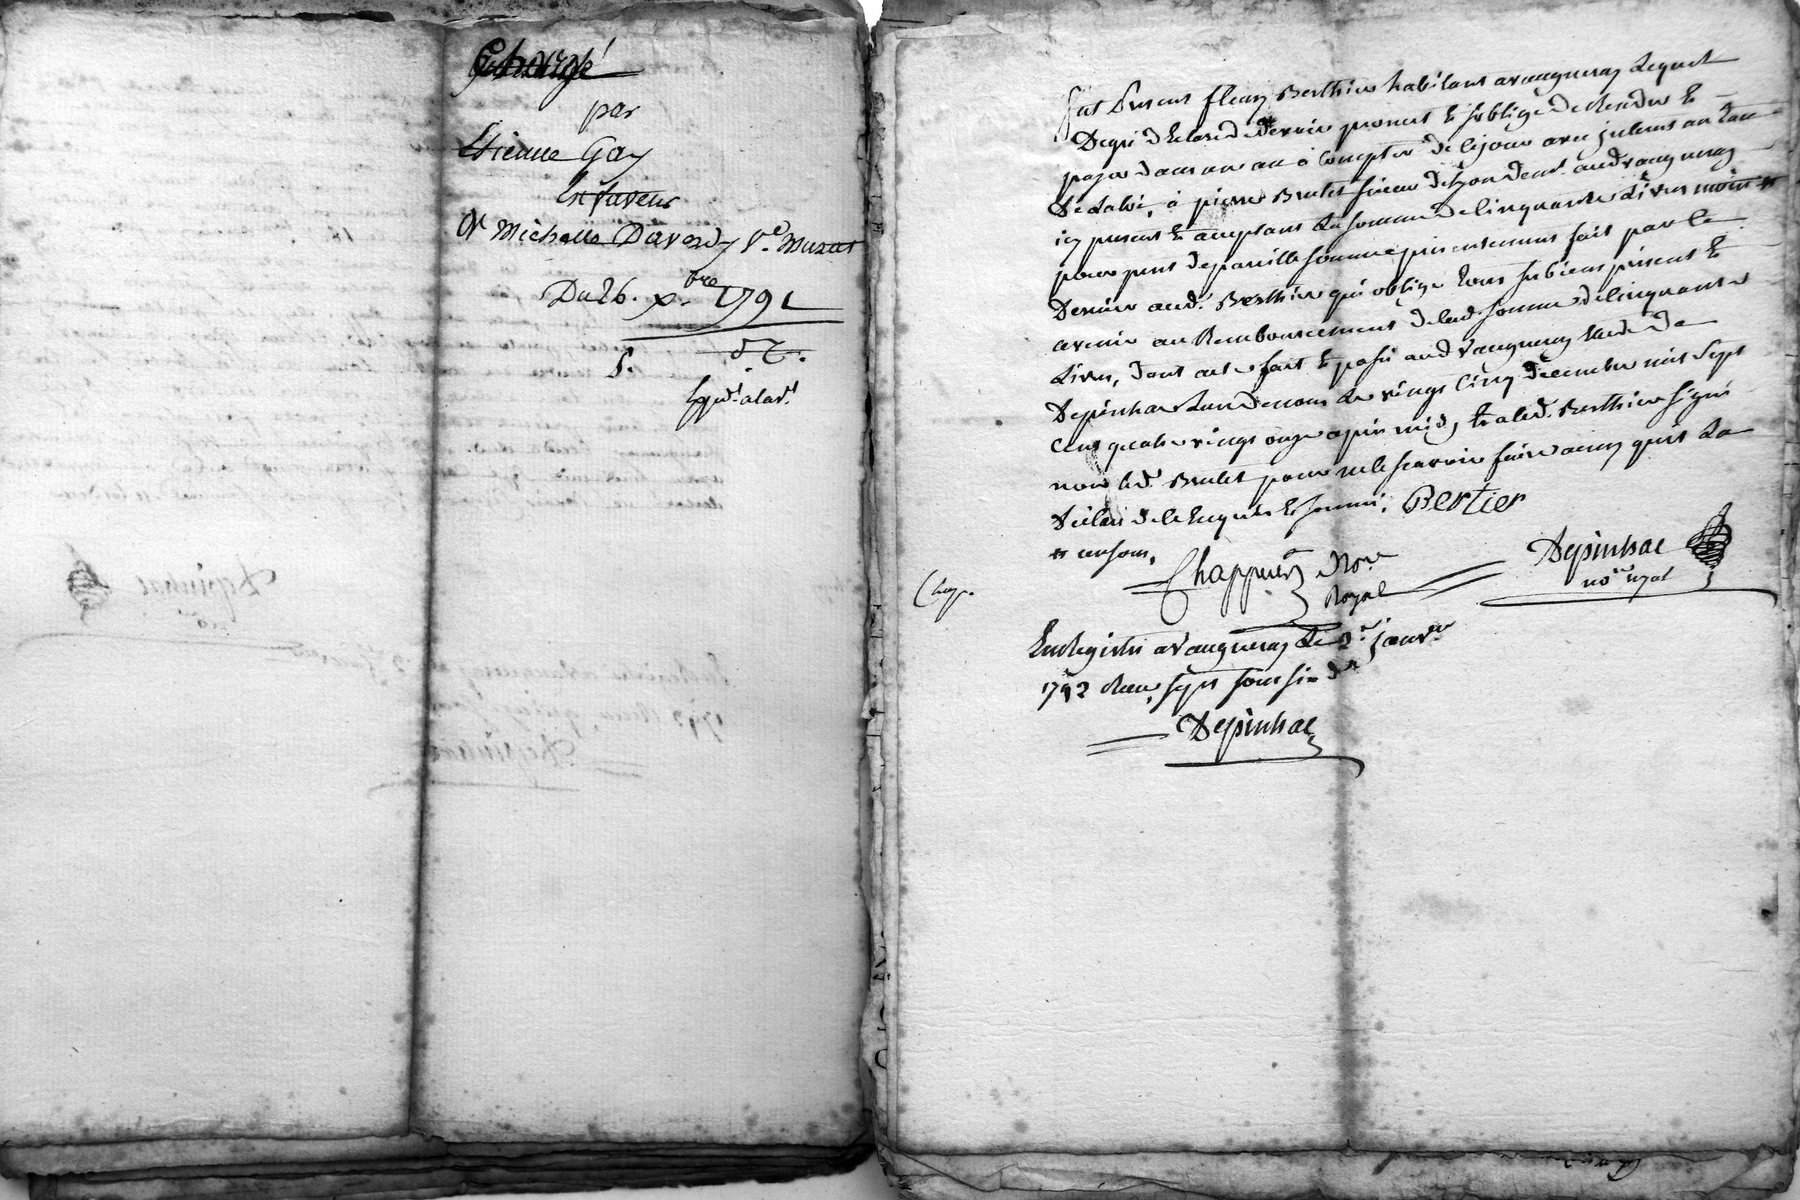 par
Etienne Gay
En faveur
De Michelle Davesdy Ve. Muzat
Du 26. Xbre. 1791
Expedt. a la d.
fut Present fleury Berthier habitant a vaugneray Lequel
De gré declare devoir promet & soblige de Rendre &
payer dans un an a Compter de Ce jour avec interets au taux
De La loi, a pierre Brulet sieur de Lyon demt. aud vaugneray
icy present & acceptant La Somme de Cinquante Livres moins #
pour pret de pareille Somme presentement fait par Ce
Dernier aud. Berthier qui oblige tous ses biens present &
avenir au Remboursement de lad. Somme de Cinquante
Livres, dont acte fait & passé aud Vaugneray Etude de
Depinhac Lun de nous Le vingt Cinq decembre mil Sept
Cent quatre vingt onze apres midy, & a led. Berthier Signé
non led. Brulet pour ne le scavoir faire ainsy quil La
Declaré de ce Enquis & sommé. Bertier
# un sou,
Chap.
Chappuis Nore. Royal
Depinhac nore. royal
Enregistré a Vaugneray Le 2e. janvr.
1792 Recu, sept sous six drs
Depinhac